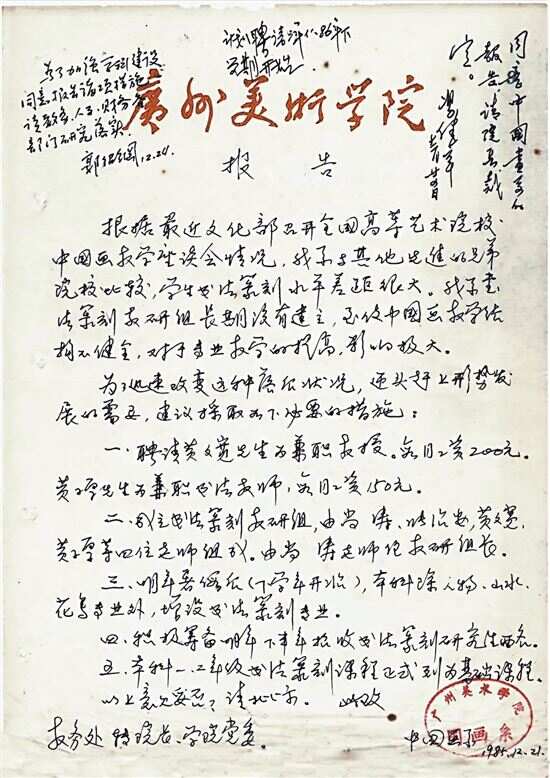 为了加强学科建设,
同意报告诸项措施,
请教务、人事、财务等
部门研究落实。
12.24.
计划聘请评仆86年下
学期开始。
同意中国画系的
报告请院长裁
定。
廣州美術学院
报 告
根据最近文化部召开全国高等艺术院校
中国画教学座谈会情况，我系与其他先进的兄弟
院校比较，学生书法篆刻水平差距很大。我系书
法篆刻教研组长期没有建立，至使中国画教学结
构不健全，对于专业教学的提高，影响极大。
为了迅速改变这种落后状况，迎头赶上形势发
展的需要，建议採取如下必要的措施：
一、聘请黄文宽先生为兼职教授。每月工资200元。
黄子厚先生为兼职书法教师，每月工资150元。
二、成立书法篆刻教研组，由尚 涛、陈治安、黄文宽、
黄子厚等四位老师组成。由尚 涛老师任教研组长。
三、明年暑假后（下学年开始），本科除人物、山水、
花鸟专业外，增设书法篆刻专业。
四、积极筹备明年下半年招收书法篆刻研究生两名。
五、本科一、二年级书法篆刻课程正式列为基础课程。
以上意见妥否？请批示。 此致
教务处 转院长、学院党委。
中国画系
1985.12.21.
广州美术学院
国画系